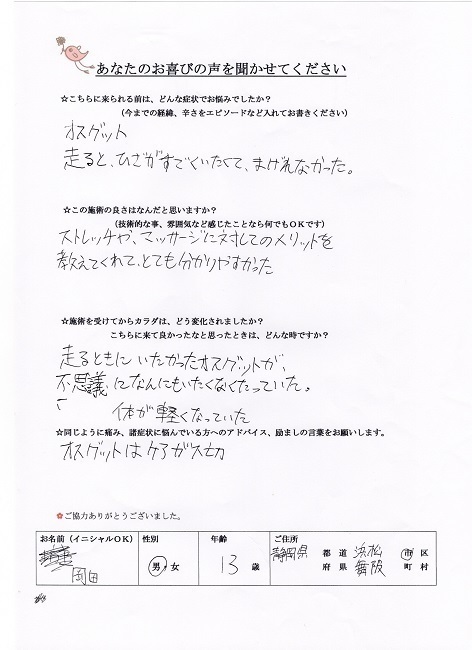 あなたのお喜びの声を聞かせてください
☆こちらに来られる前は、どんな症状でお悩みでしたか？
（今までの経緯、辛さをエピソードなど入れてお書きください）
オスグット
走ると、ひざがすごくいたくて、まげれなかった。
☆この施術の良さはなんだと思いますか？
（技術的な事、雰囲気など感じたことなら何でもOKです）
ストレッチや、マッサージに対してのメリットを
教えてくれて、とても分かりやすかった
☆施術を受けてからカラダは、どう変化されましたか？
こちらに来て良かったなと思ったときは、どんな時ですか？
走るともにいたかったオスグットが、
不思議になんにもいたくなくなっていた。
体が軽くなっていた
☆同じように痛み、諸症状に悩んでいる方へのアドバイス、励ましの言葉をお願いします。
オスグットはケアが大切
ご協力ありがとうございました。
お名前（イニシャルOK） 性別 年齢 ご住所
岡田 男・女 13歳 静岡県 都道府県 浜松 舞阪 市区町村